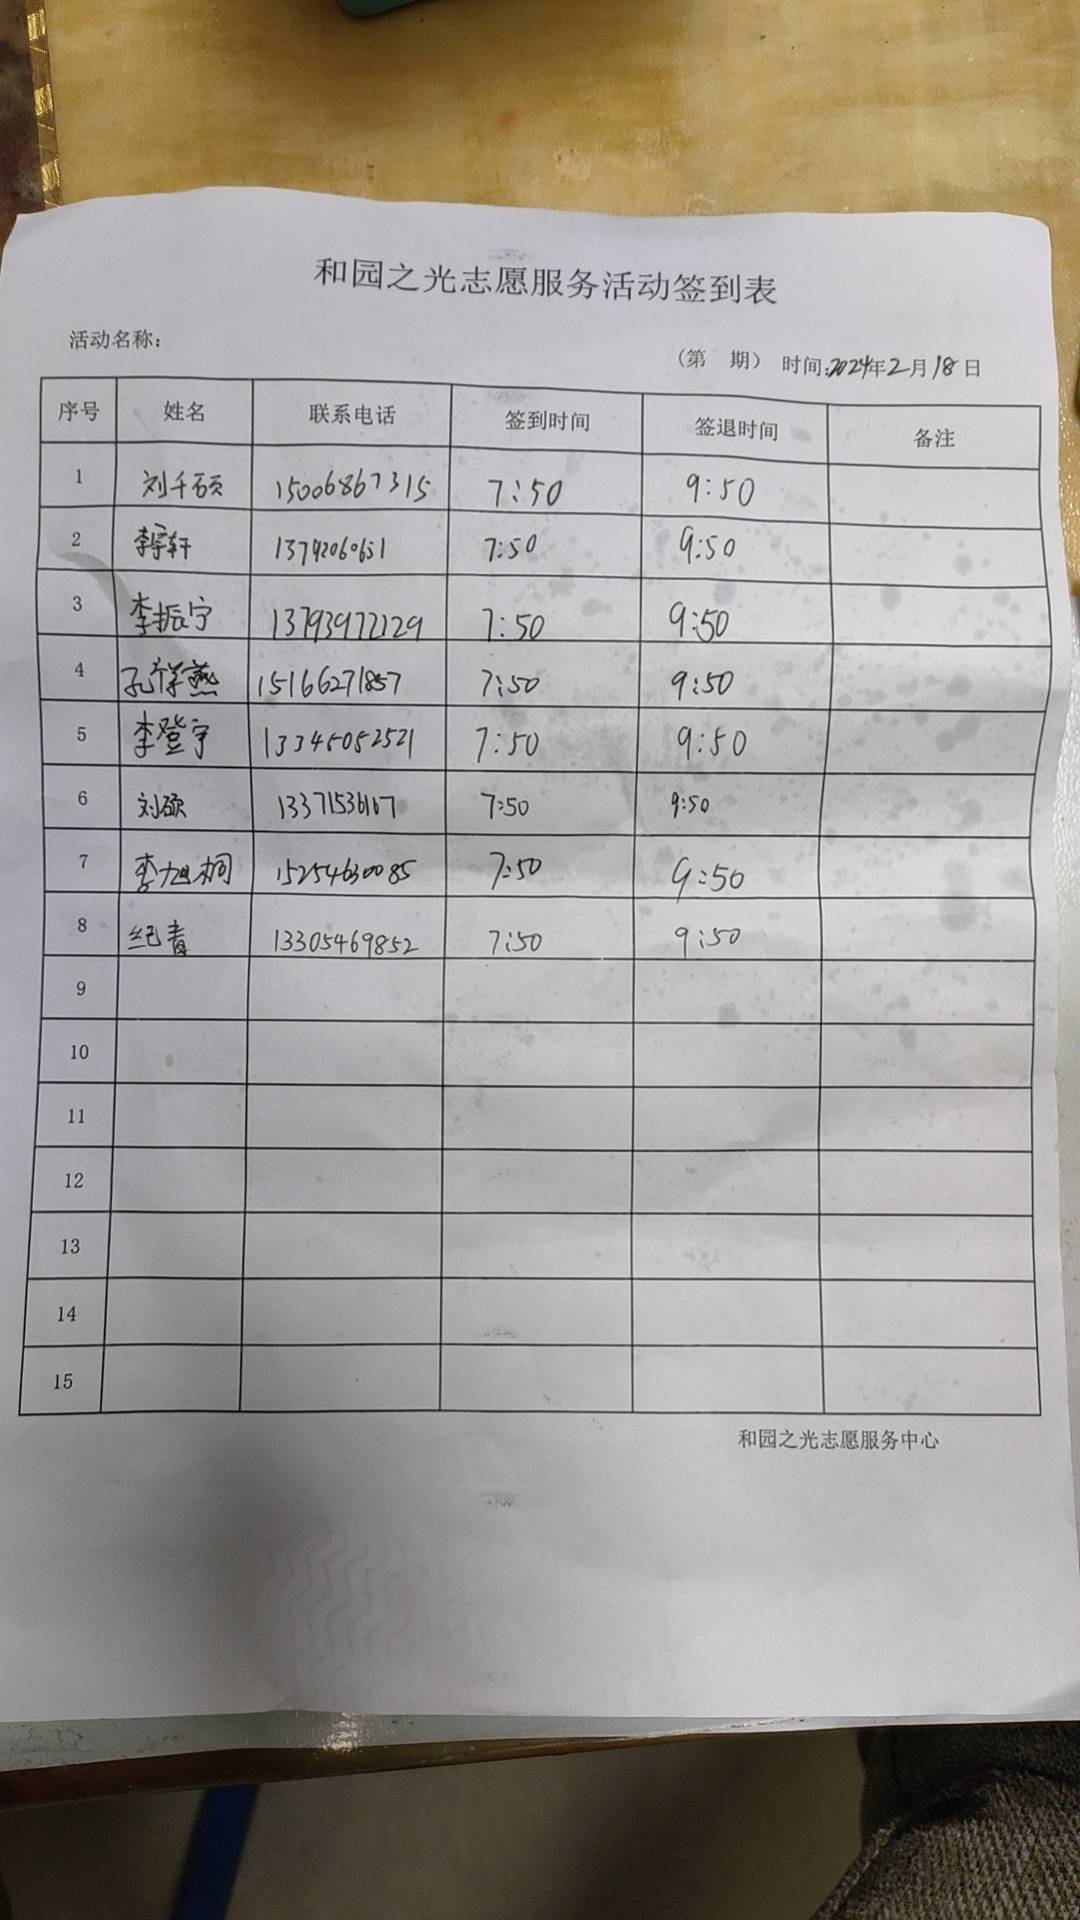 和园之光志愿服务活动签到表
活动名称：
（第 期） 时间:2024年2月18日
序号 姓名 联系电话 签到时间 签退时间 备注
1 刘千硕 15006867315 7:50 9:50
2 李宇轩 13792060651 7:50 9:50
3 李振宁 13793972129 7:50 9:50
4 孔祥燕 15166271857 7:50 9:50
5 李登宇 13345052521 7:50 9:50
6 刘硕 13371536167 7:50 9:50
7 李旭桐 15254630085 7:50 9:50
8 纪青 13305469852 7:50 9:50
9
10
11
12
13
14
15
和园之光志愿服务中心